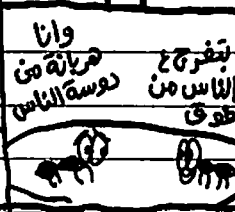 بتفرج ع
الناس من
فوق
وانا
هربانة من
دوسة الناس